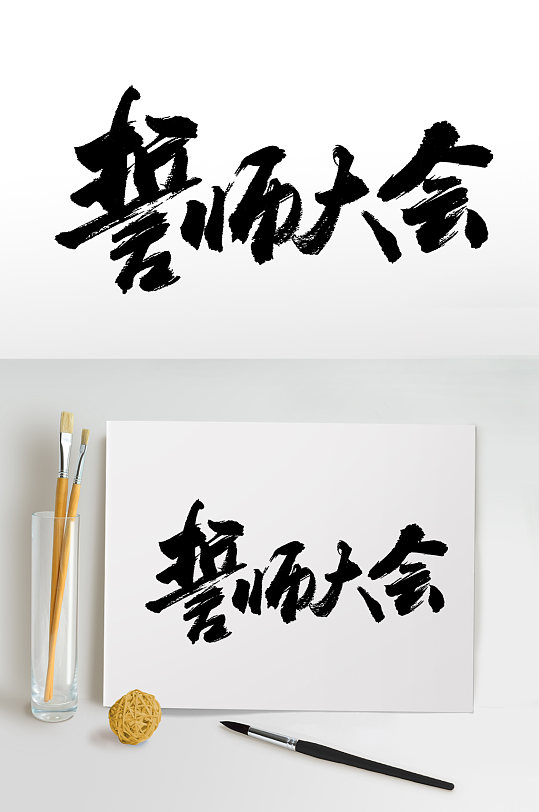 誓师大会
誓师大会